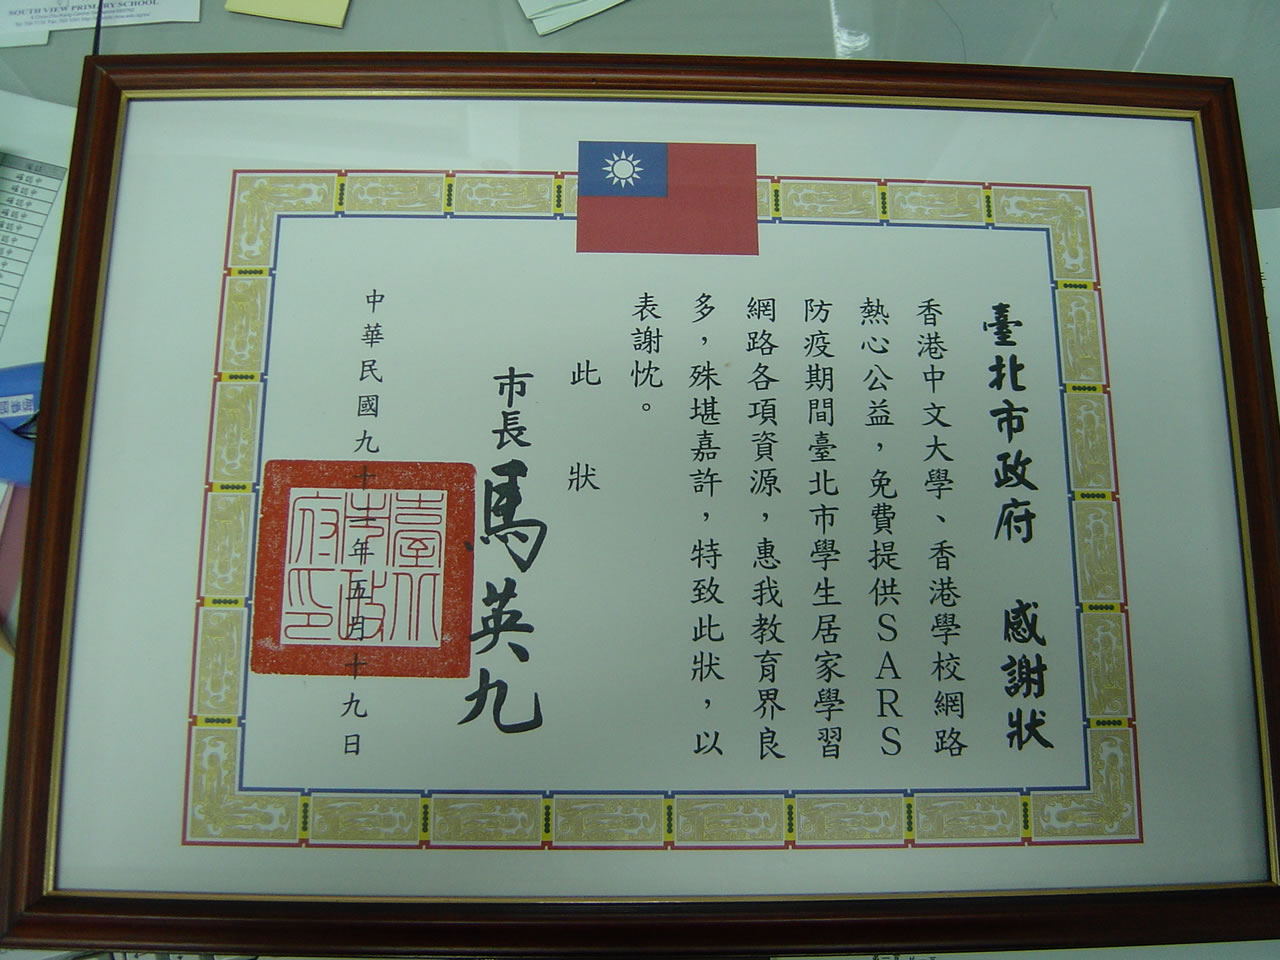 臺北市政府 感謝狀
香港中文大學、香港學校網路
熱心公益，免費提供SARS
防疫期間臺北市學生居家學習
網路各項資源，惠我教育界良
多，殊堪嘉許，特致此狀，以
表謝忱。
此狀
市長 馬英九
中華民國九十年五月十九日
臺北市政府印
SOUTH VIEW PRIMARY SCHOOL